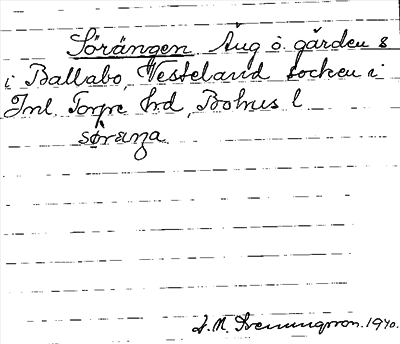 Sörängen. Äng ö. gården 8
i Ballabo, Västerland socken i
Inl. Torpe hd, Bohus l.
söräŋa
J. M. Svenungsson. 1940.